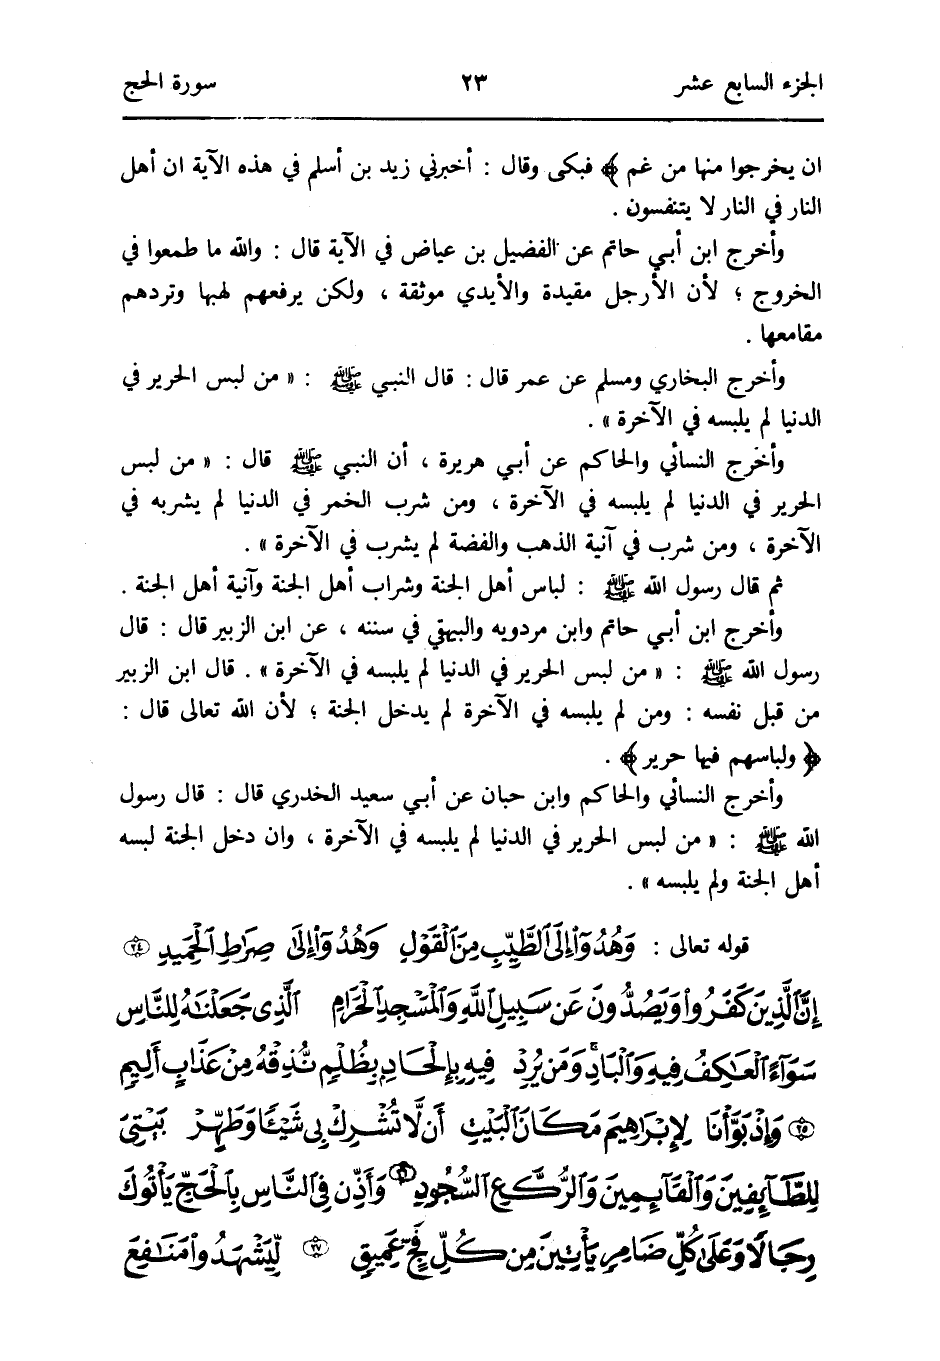 الجزء السابع عشر ٢٣ سورة الحج
ان يخرجوا منها من غم ﴾ فبكى وقال : أخبرني زيد بن أسلم في هذه الآية ان أهل
النار في النار لا يتنفسون .
وأخرج ابن أبي حاتم عن الفضيل بن عياض في الآية قال : والله ما طمعوا في
الخروج ؛ لأن الأرجل مقيدة والأيدي موثقة ، ولكن يرفعهم لهبها وتردهم
مقامعها .
وأخرج البخاري ومسلم عن عمر قال : قال النبي ﷺ : « من لبس الحرير في
الدنيا لم يلبسه في الآخرة » .
وأخرج النسائي والحاكم عن أبي هريرة ، أن النبي ﷺ قال : « من لبس
الحرير في الدنيا لم يلبسه في الآخرة ، ومن شرب الخمر في الدنيا لم يشربه في
الآخرة ، ومن شرب في آنية الذهب والفضة لم يشرب في الآخرة » .
ثم قال رسول الله ﷺ : لباس أهل الجنة وشراب أهل الجنة وآنية أهل الجنة .
وأخرج ابن أبي حاتم وابن مردويه والبيهقي في سننه ، عن ابن الزبير قال : قال
رسول الله ﷺ : « من لبس الحرير في الدنيا لم يلبسه في الآخرة » . قال ابن الزبير
من قبل نفسه : ومن لم يلبسه في الآخرة لم يدخل الجنة ؛ لأن الله تعالى قال :
﴿ ولباسهم فيها حرير ﴾ .
وأخرج النسائي والحاكم وابن حبان عن أبي سعيد الخدري قال : قال رسول
الله ﷺ : « من لبس الحرير في الدنيا لم يلبسه في الآخرة ، وان دخل الجنة لبسه
أهل الجنة ولم يلبسه » .
قوله تعالى : وَهُدُوٓا۟ إِلَى ٱلطَّيِّبِ مِنَ ٱلْقَوْلِ وَهُدُوٓا۟ إِلَىٰ صِرَٰطِ ٱلْحَمِيدِ ٢٤
إِنَّ ٱلَّذِينَ كَفَرُوا۟ وَيَصُدُّونَ عَن سَبِيلِ ٱللَّهِ وَٱلْمَسْجِدِ ٱلْحَرَامِ ٱلَّذِى جَعَلْنَٰهُ لِلنَّاسِ
سَوَآءً ٱلْعَٰكِفُ فِيهِ وَٱلْبَادِ ۚ وَمَن يُرِدْ فِيهِ بِإِلْحَادٍۭ بِظُلْمٍ نُّذِقْهُ مِنْ عَذَابٍ أَلِيمٍ
٢٥ وَإِذْ بَوَّأْنَا لِإِبْرَٰهِيمَ مَكَانَ ٱلْبَيْتِ أَن لَّا تُشْرِكْ بِى شَيْـًٔا وَطَهِّرْ بَيْتِىَ
لِلطَّآئِفِينَ وَٱلْقَآئِمِينَ وَٱلرُّكَّعِ ٱلسُّجُودِ ٢٦ وَأَذِّن فِى ٱلنَّاسِ بِٱلْحَجِّ يَأْتُوكَ
رِجَالًا وَعَلَىٰ كُلِّ ضَامِرٍ يَأْتِينَ مِن كُلِّ فَجٍّ عَمِيقٍ ٢٧ لِّيَشْهَدُوا۟ مَنَٰفِعَ